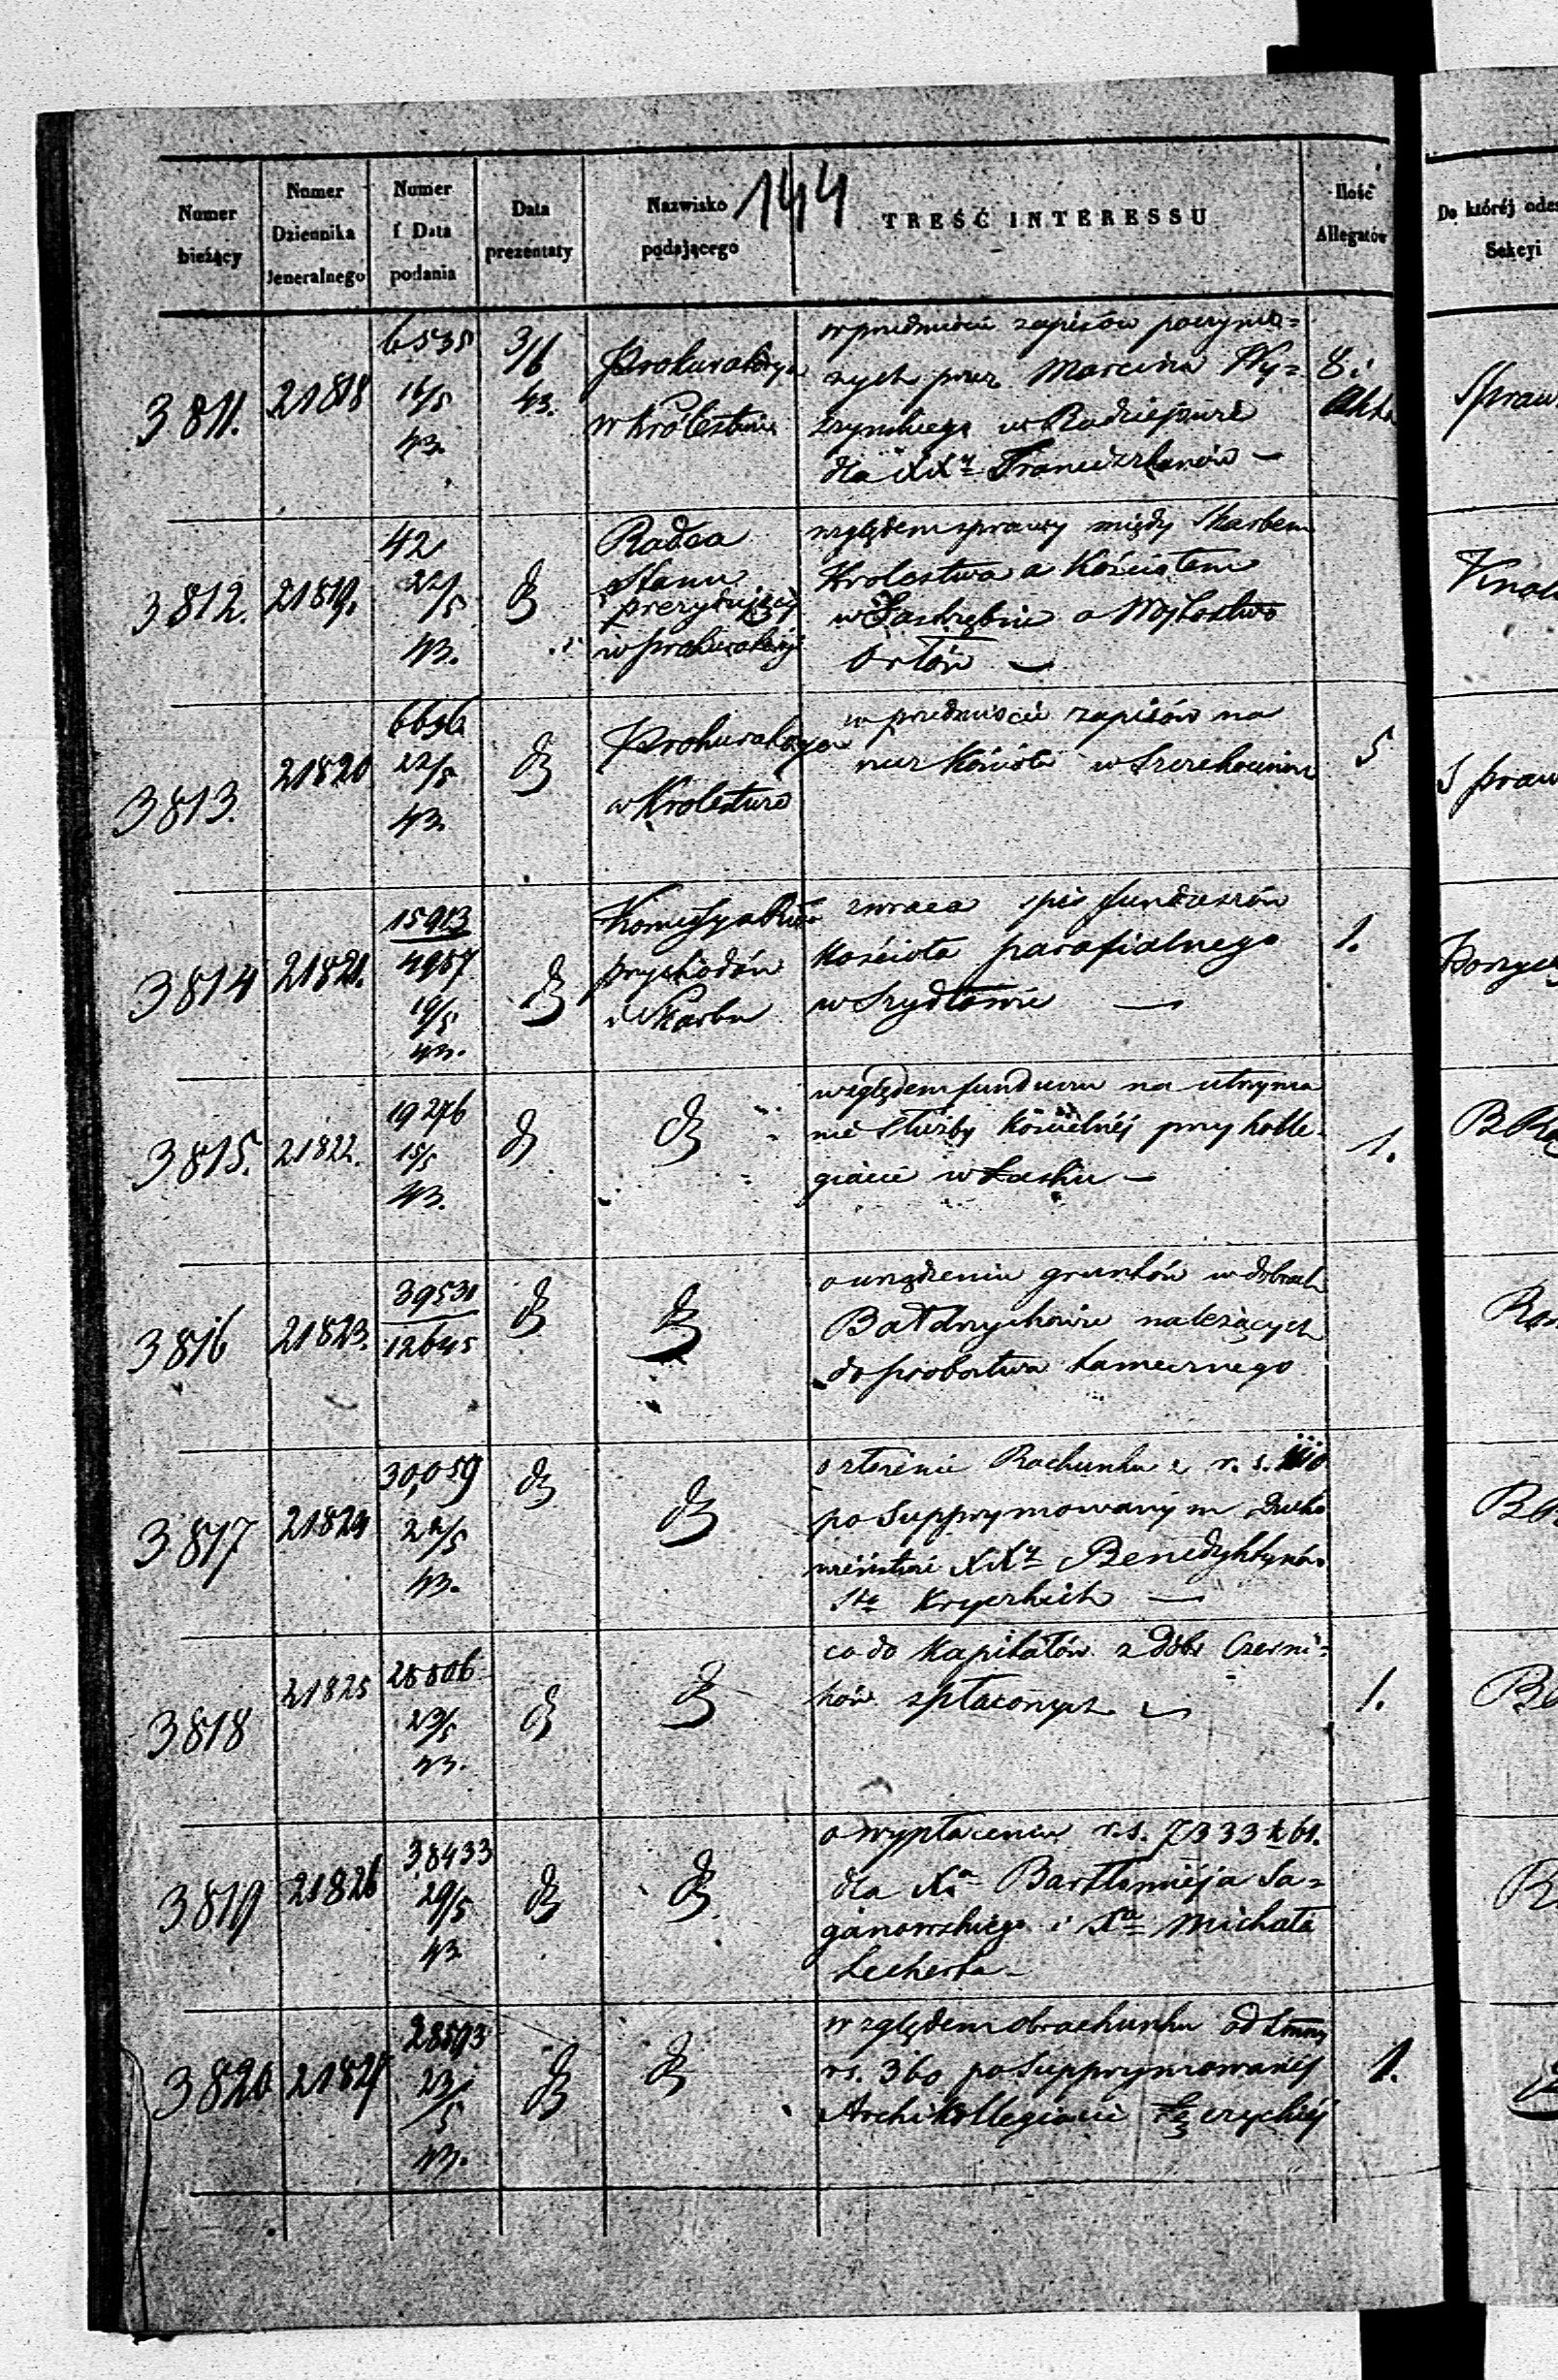 144
Numer bieżący
Numer Dziennika Jeneralnego
Numer i Data podania
Data prezentaty
Nazwisko podającego
TREŚĆ INTERESSU
Ilość Allegatów
Do któréj odes
Sekcyi
3811.
21818
6535
16/5
43.
3/6
43.
Prokuratorya
w Królestwie
w przedmiocie zapisów poczynio=
nych przez Marcina Wy=
szyńskiego w Radziejowie
dla XXy Franciszkanów —
8 i
Akta
Spraw
3812.
21819.
42
22/5
43.
Radca
Stanu
prezydujący
w prokuratoryi
względem sprawy między Skarbem
Królestwa a Kościołem
w Jastrzębiu o Wójtostwo
Orłów —
3813.
21820
6696
22/5
43.
Prokuratorya
w Królestwie
w przedmiocie zapisów na
rzecz Kościoła w
5
Spraw
3814
21821.
15913
4987
19/5
43.
Komissya Rzdo
przychodów
i Skarbu
zwraca spis funduszów
Kościoła parafialnego
w Szydłowie —
1.
3815.
21822.
19276
15/5
43.
względem funduszu na utrzyma
nie Służby Kościelnéj przy Kolle-
giacie w Łasku —
1.
3816
21823.
39531
12645
o urządzeniu gruntów w dobrach
Bałdrzychowie należących
do probostwa
3817
21824
30,059
22/5
43.
o złożenie Rachunku z r. s.
po Supprymowanym Zgro
XXy Benedyktynów
Sto Krzyzkich —
3818
21825
28806
23/5
43.
co do Kapitałów z Dóbr Czerni=
ków spłaconych —
1.
3819
21826
38433
29/5
43
o wypłacenie r.s. 7333 k 61.
dla Xa Bartłomieja Sa=
ganowskiego i Xa Michała
Lecherta —
3820
21827
28593
23/5
43.
względem obrachunku od Summy
rs. 360 po Supprymowanéj
Archikollegiacie Łęczyckiéj
1.